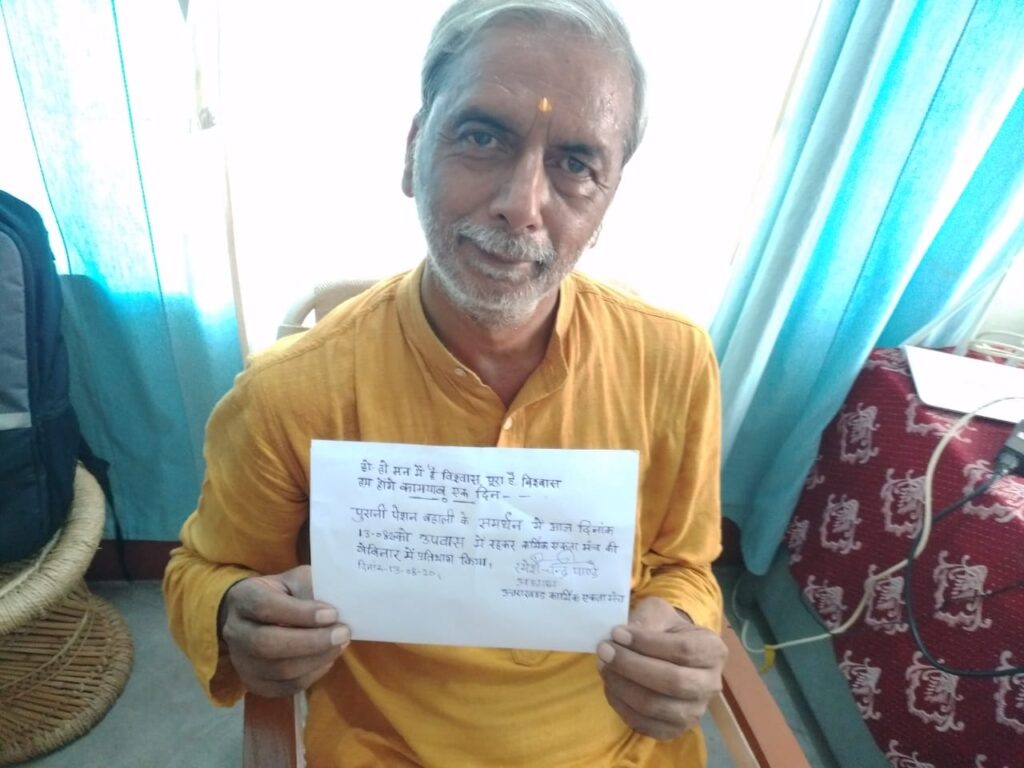 हो-हो मन में है विश्वास, पूरा है विश्वास
हम होंगे कामयाब एक दिन - -
पुरानी पेंशन बहाली के समर्थन में आज दिनांक
को उपवास में रहकर कार्मिक एकता मंच की
वेबिनार में प्रतिभाग किया।
दिनांक-13-08-20
पाण्डे
अध्यक्ष
उत्तराखण्ड कार्मिक एकता मंच